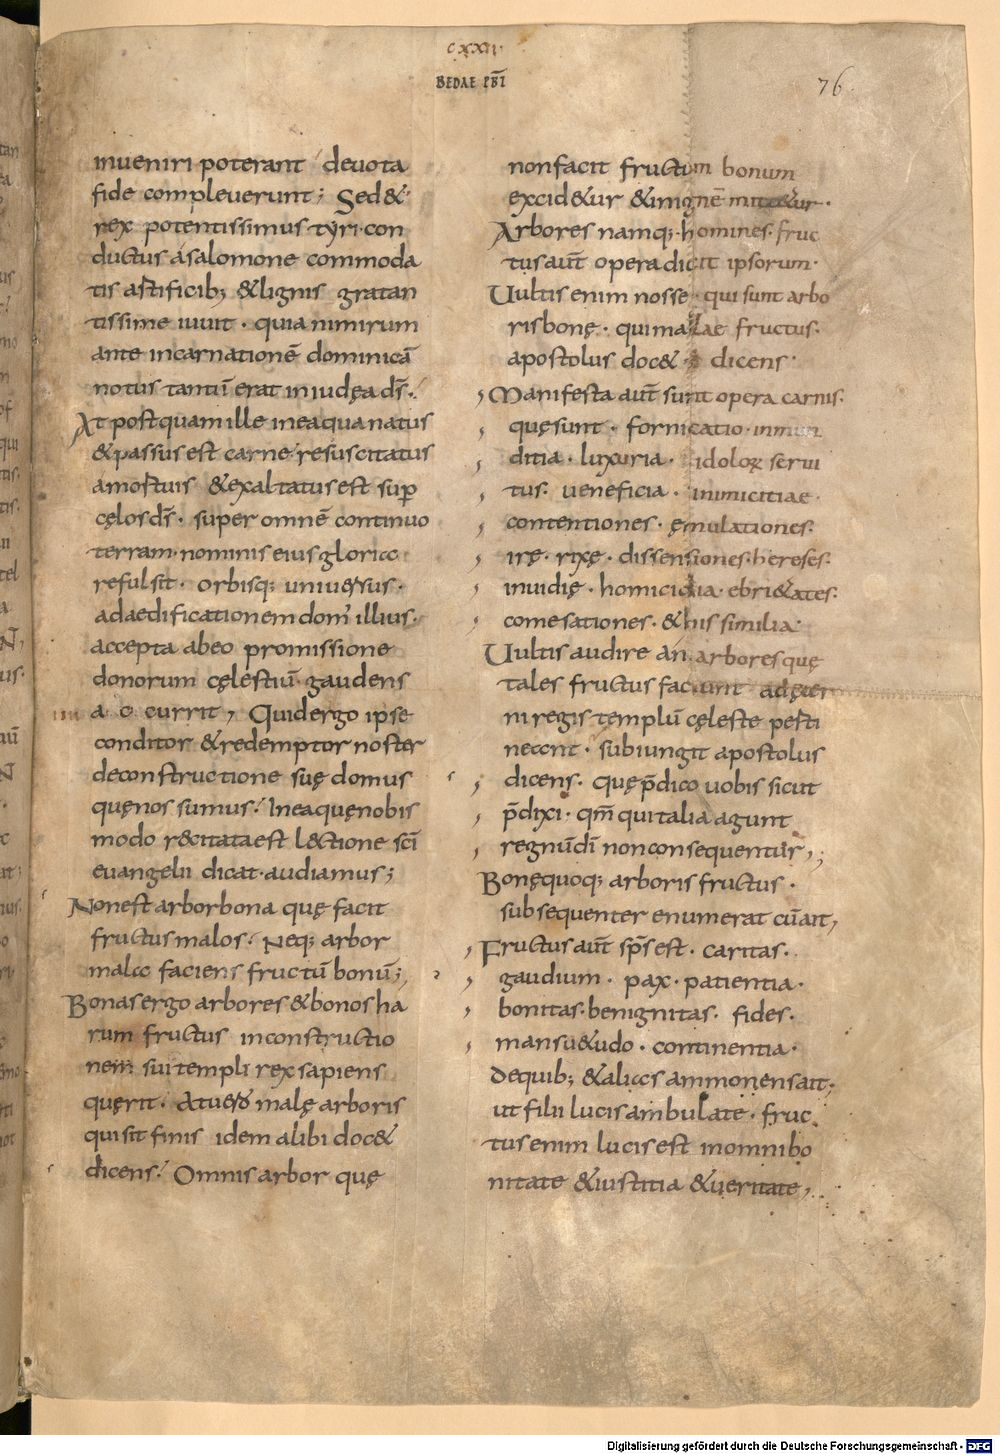 CXXII
BEDAE PBI
76
inueniri poterant devota
fide compleverunt; Sed &
rex potentissimus tyri · con
ductus asalomone commoda
tis artificib; & lignis gratan
tissime iuuit · quia nimirum
ante incarnationē dominicā
notus tantū erat iniudęa ds̄ ·
At postquam ille inea qua natus
& passus est carne resuscitatus
amortuis & exaltatus est sup̄
cęlos ds̄ · super omnē continuo
terram · nominis eius gloria
refulsit · orbisq; uniuersus ·
ad aedificationem dom̄ illius ·
accepta abeo promissione
donorum cęlestiū · gaudens
accurrit, Quid ergo ipse
conditor & redemptor noster
deconstructione suę domus
quę nos sumus · Inea quę nobis
modo r&citata est l&ctione sc̄i
euangelii dicat · audiamus;
Non est arbor bona quę facit
fructus malos · Neq; arbor
mala faciens fructū bonū;
Bonas ergo arbores & bonos ha
rum fructus inconstructio
nem sui templi rex sapiens
quęrit · Atuero malę arboris
qui sit finis idem alibi doc&
dicens · Omnis arbor quę
non facit fructum bonum
excid&ur & inignē mitt&ur ·
Arbores namq; homines · fruc
tus aut̄ opera dicit ipsorum ·
Uultis enim nosse · qui sunt arbo
ris bonę · qui malae fructus ·
apostolus doc& dicens ·
Manifesta aut̄ sunt opera carnis ·
quę sunt · fornicatio · inmun
ditia · luxuria · idoloꝝ serui
tus · ueneficia · inimicitiae ·
contentiones · ęmulationes ·
irę · rixę · dissensiones · hereses ·
inuidię · homicidia · ebri&ates ·
comesationes · & his similia ·
Uultis audire an arbores quę
tales fructus faciunt ad ęter
ni regis templū cęleste perti
neant · subiungit apostolus
dicens · quę p̄dico uobis sicut
p̄dixi · qm̄ qui talia agunt
regnū dī non consequentur,;
Bonę quoq; arboris fructus ·
subsequenter enumerat cū ait,
Fructus aut̄ sp̄s est · caritas ·
gaudium · pax · patientia ·
bonitas · benignitas · fides ·
mansu&udo · continentia ·
De quib; & alias ammonens ait ·
ut filii lucis ambulate · fruc
tus enim lucis est inomni bo
nitate & iustitia & ueritate,
Digitalisierung gefördert durch die Deutsche Forschungsgemeinschaft - DFG